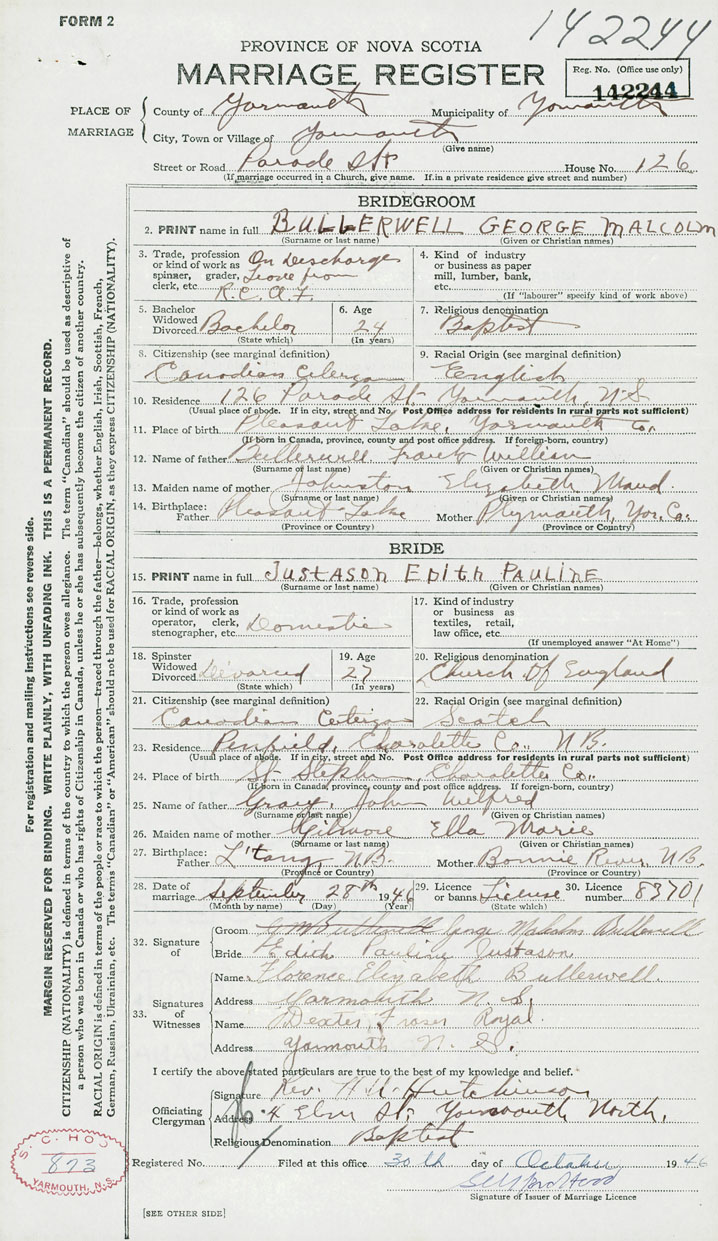 FORM 2
142244
PROVINCE OF NOVA SCOTIA
MARRIAGE REGISTER
Reg. No. (Office use only)
142244
PLACE OF MARRIAGE
County of Yarmouth Municipality of Yarmouth
City, Town or Village of Yarmouth
(Give name)
Street or Road Parade St House No. 126
(If marriage occurred in a Church, give name. If in a private residence give street and number)
BRIDEGROOM
2. PRINT name in full BULLERWELL GEORGE MALCOLM
(Surname or last name) (Given or Christian names)
3. Trade, profession or kind of work as spinner, grader, clerk, etc. On Discharge Leave from R.C.A.F.
4. Kind of industry or business as paper mill, lumber, bank, etc.
(If "labourer" specify kind of work above)
5. Bachelor Widowed Divorced Bachelor
(State which)
6. Age 24
(In years)
7. Religious denomination
Baptist
8. Citizenship (see marginal definition)
Canadian Citizen
9. Racial Origin (see marginal definition)
English
10. Residence 126 Parade St Yarmouth, N.S
(Usual place of abode. If in city, street and No. Post Office address for residents in rural parts not sufficient)
11. Place of birth Pleasant Lake, Yarmouth Co.
(If born in Canada, province, county and post office address. If foreign-born, country)
12. Name of father Bullerwell, Frank William
(Surname or last name) (Given or Christian names)
13. Maiden name of mother Johnston Elizabeth Maud.
(Surname or last name) (Given or Christian names)
14. Birthplace: Father Pleasant Lake Mother Plymouth, Yar. Co.
(Province or Country) (Province or Country)
BRIDE
15. PRINT name in full JUSTASON EDITH PAULINE
(Surname or last name) (Given or Christian names)
16. Trade, profession or kind of work as operator, clerk, stenographer, etc. Domestic
17. Kind of industry or business as textiles, retail, law office, etc.
(If unemployed answer "At Home")
18. Spinster Widowed Divorced Divorced
(State which)
19. Age 27
(In years)
20. Religious denomination
Church Of England
21. Citizenship (see marginal definition)
Canadian Citizen
22. Racial Origin (see marginal definition)
Scotch
23. Residence Penfield, Charolette Co., N.B.
(Usual place of abode. If in city, street and No. Post Office address for residents in rural parts not sufficient)
24. Place of birth St. Stephen, Charolette Co.,
(If born in Canada, province, county and post office address. If foreign-born, country)
25. Name of father Gray, John Wilfred
(Surname or last name) (Given or Christian names)
26. Maiden name of mother Gilmore Ella Marie
(Surname or last name) (Given or Christian names)
27. Birthplace: Father L'tang N.B. Mother Bonnie River, N.B.
(Province or Country) (Province or Country)
28. Date of marriage September 28th 1946
(Month by name) (Day) (Year)
29. Licence or banns License
(State which)
30. Licence number 83701
32. Signature of
Groom George Malcolm Bullerwell
Bride Edith Pauline Justason
33. Signatures of Witnesses
Name Florence Elizabeth Bullerwell.
Address Yarmouth N. S.
Name Dexter Fraser Royal.
Address Yarmouth N. S.
I certify the above stated particulars are true to the best of my knowledge and belief.
Officiating Clergyman
Signature Rev. Hutchinson
Address 4 Elm St. Yarmouth North.
Religious Denomination Baptist
Registered No. Filed at this office 30th day of October 1946
Signature of Issuer of Marriage Licence
[SEE OTHER SIDE]
S. C. HOOD
873
YARMOUTH, N.S.
For registration and mailing instructions see reverse side.
MARGIN RESERVED FOR BINDING. WRITE PLAINLY, WITH UNFADING INK. THIS IS A PERMANENT RECORD.
CITIZENSHIP (NATIONALITY) is defined in terms of the country to which the person owes allegiance. The term "Canadian" should be used as descriptive of
a person who was born in Canada or who has rights of Citizenship in Canada, unless he or she has subsequently become the citizen of another country.
RACIAL ORIGIN is defined in terms of the people or race to which the person—traced through the father—belongs, whether English, Irish, Scottish, French,
German, Russian, Ukrainian, etc. The terms "Canadian" or "American" should not be used for RACIAL ORIGIN, as they express CITIZENSHIP (NATIONALITY).